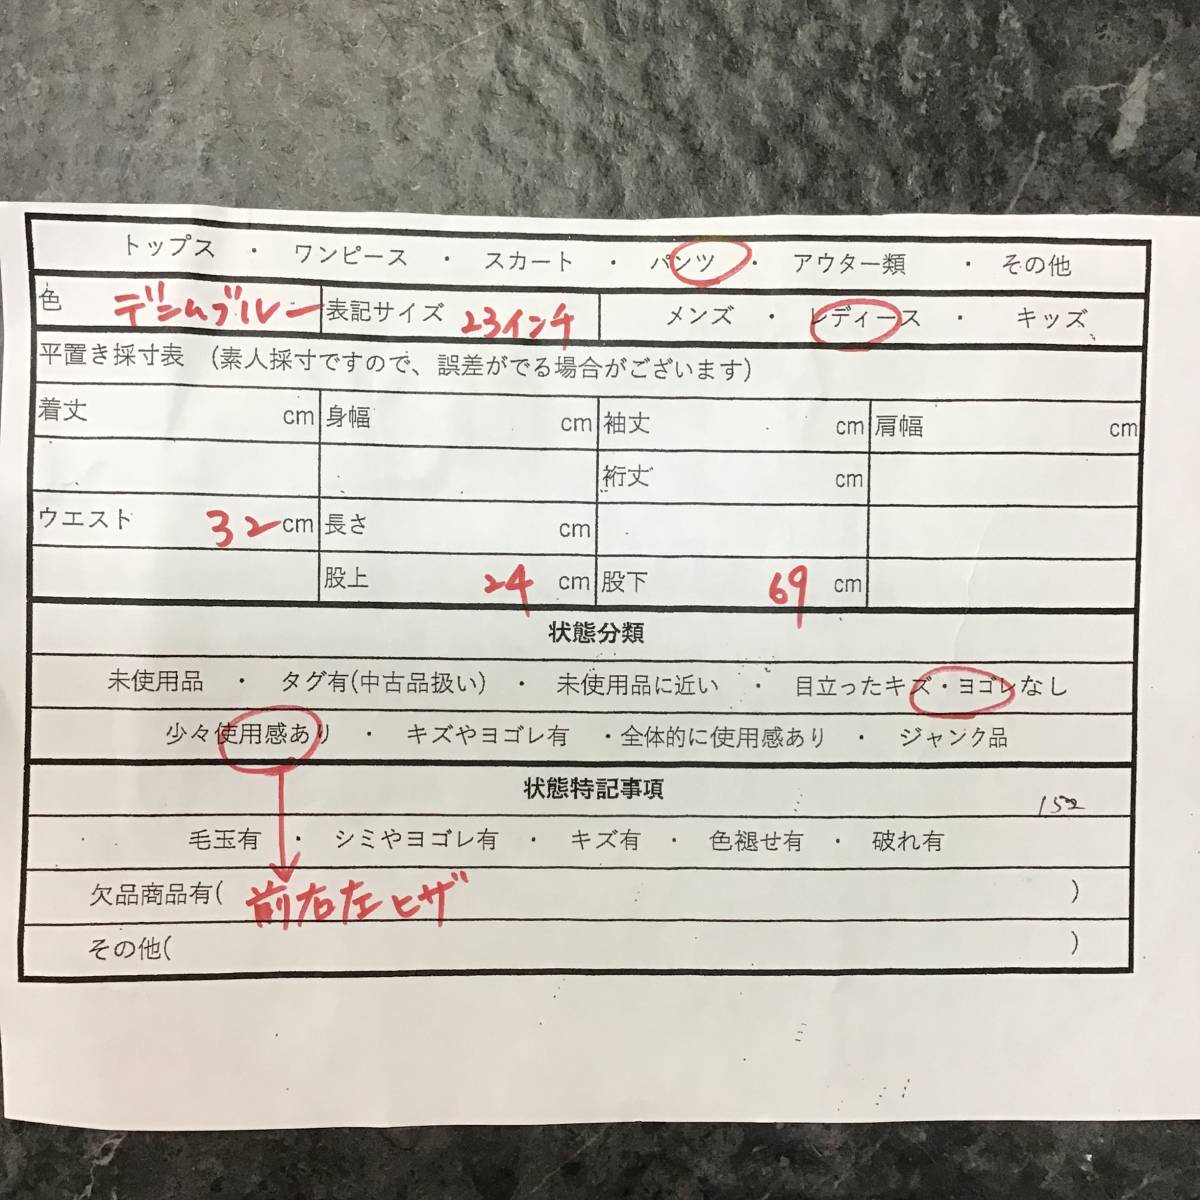 トップス ・ ワンピース ・ スカート ・ パンツ ・ アウター類 ・ その他
色 デシムブルー 表記サイズ 23インチ メンズ ・ レディース ・ キッズ
平置き採寸表 (素人採寸ですので、誤差がでる場合がございます)
着丈 cm 身幅 cm 袖丈 cm 肩幅 cm
裄丈 cm
ウエスト 32cm 長さ cm
股上 24 cm 股下 69 cm
状態分類
未使用品 ・ タグ有(中古品扱い) ・ 未使用品に近い ・ 目立ったキズ・ヨゴレなし
少々使用感あり ・ キズやヨゴレ有 ・全体的に使用感あり ・ ジャンク品
状態特記事項 152
毛玉有 ・ シミやヨゴレ有 ・ キズ有 ・ 色褪せ有 ・ 破れ有
欠品商品有( 前右左ヒザ )
その他( )